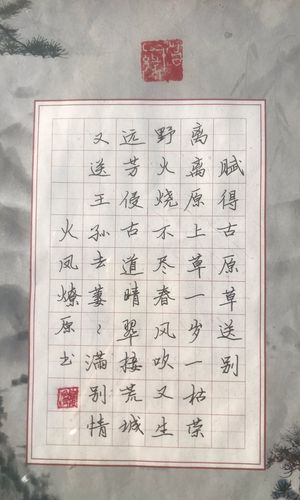 赋得古原草送别
离离原上草一岁一枯荣
野火烧不尽春风吹又生
远芳侵古道晴翠接荒城
又送王孙去萋〻满别情
火凤燎原书